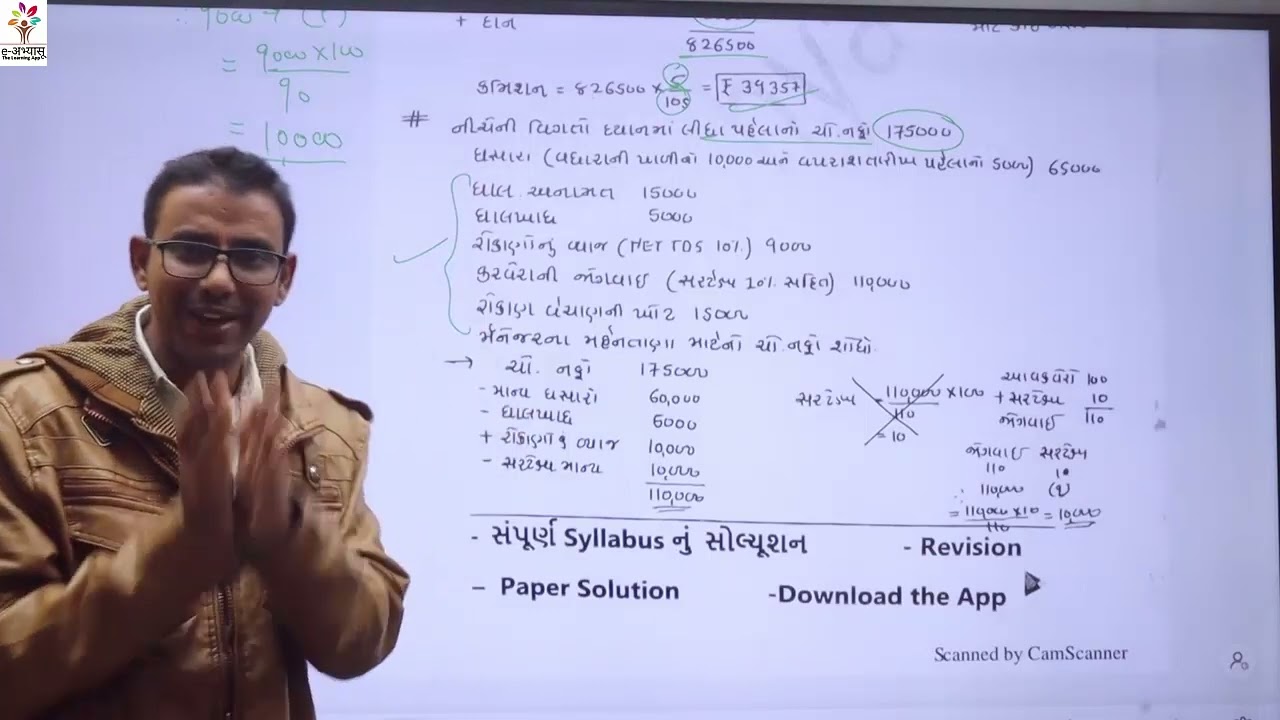 e-અભ્યાસ
The Learning App
+ દાન
826500
કમિશન = 826500 × 5/105 = ₹ 39357
# નીચેની વિગતો ધ્યાનમાં લીધા પહેલાનો ચો. નફો 175000
ઘસારા (વધારાની પાળીનો 10,000 અને વપરાશ તારીખ પહેલાનો 5000) 65000
ઘાલ. અનામત 15000
ઘાલખાધ 5000
રોકાણોનું વ્યાજ (NET TDS 10%) 9000
કરવેરાની જોગવાઇ (સરચાર્જ 10% સહિત) 110,000
રોકાણ વેચાણની ખોટ 15000
મેનેજરના મહેનતાણા માટેનો ચો. નફો શોધો.
→ ચો. નફો 175000
- માન્ય ઘસારો 60,000
- ઘાલખાધ 5000
+ રોકાણોનું વ્યાજ 10,000
- સરચાર્જ માન્ય 10,000
110,000
110,000 × 100
110
= 10
આવકવેરો 100
+ સરચાર્જ 10
જોગવાઇ 110
જોગવાઇ સરચાર્જ
110 10
∴ 110,000 (?)
= 110,000 × 10 / 110 = 10,000
= 9000 × 100
90
= 10000
- સંપૂર્ણ Syllabus નું સોલ્યૂશન - Revision
– Paper Solution -Download the App
Scanned by CamScanner